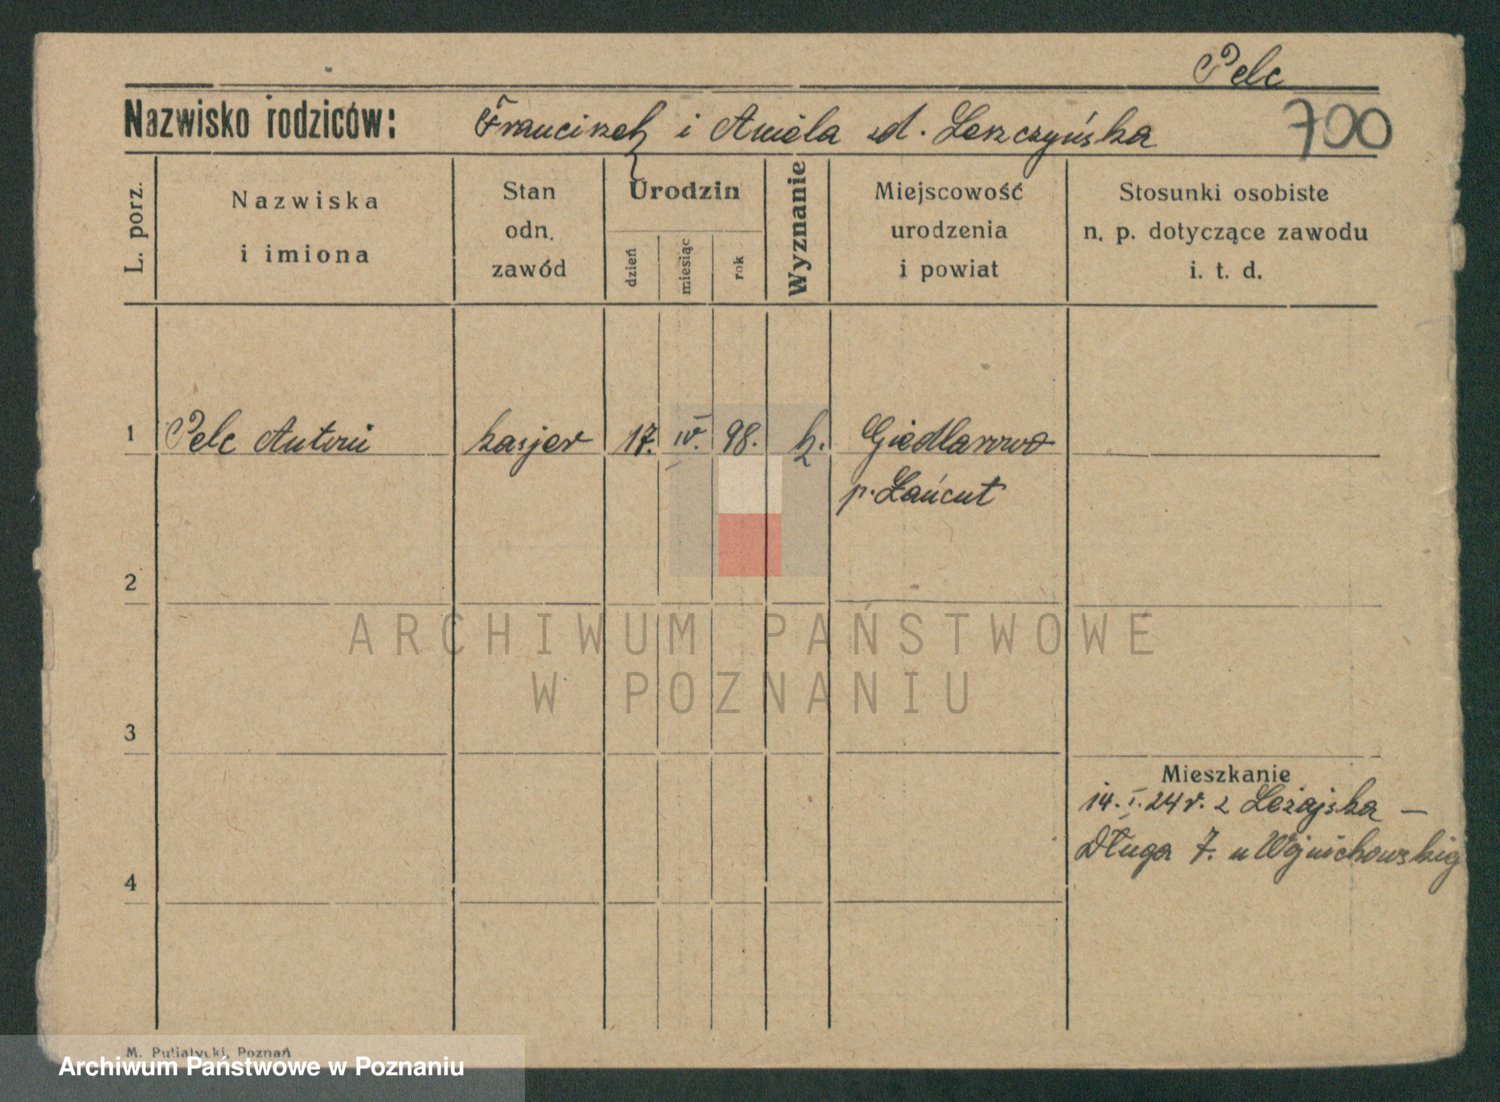 Pelc
Nazwisko rodziców: Franciszek i Aniela zd. Leszczyńska 700
L. porz.
Nazwiska
i imiona
Stan
odn.
zawód
Urodzin
dzień
miesiąc
rok
Wyznanie
Miejscowość
urodzenia
i powiat
Stosunki osobiste
n. p. dotyczące zawodu
i. t. d.
1 Pelc Antoni kasjer 17. IV. 98. k. Giedlarowa
p. Łańcut
2
3
4
Mieszkanie
14. I. 24 r. z Leżajska –
Długa 7. u Wojnichowskieg
ARCHIWUM PAŃSTWOWE
W POZNANIU
M. Putiatycki, Poznań
Archiwum Państwowe w Poznaniu